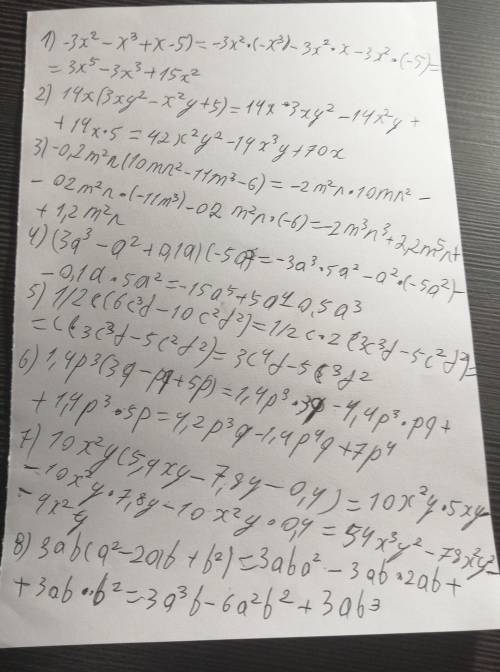 1) -3x² - x³ + x - 5) = -3x² · (-x³) - 3x² · x - 3x² · (-5) =
= 3x⁵ - 3x³ + 15x²
2) 14x(3xy² - x²y + 5) = 14x · 3xy² - 14x²y +
+ 14x · 5 = 42x²y² - 14x³y + 70x
3) -0,2m²n(10mn² - 11m³ - 6) = -2m²n · 10mn² -
- 02m²n · (-11m³) - 02 m²n · (-6) = -2m³n³ + 2,2m⁵n +
+ 1,2m²n
4) (3a³ - a² + 0,1a)(-5a²) = -3a³ · 5a² - a² · (-5a²) -
- 0,1a · 5a² = -15a⁵ + 5a⁴ 0,5a³
5) 1/2c(6c³d - 10c²d²) = 1/2c · 2(3c³d - 5c²d²) =
= c(3c³d - 5c²d²) = 3c⁴d - 5c³d²
6) 1,4p³(3q - pq + 5p) = 1,4p³ · 3q - 1,4p³ · pq +
+ 1,4p³ · 5p = 4,2p³q - 1,4p⁴q + 7p⁴
7) 10x²y(5,4xy - 7,8y - 0,4) = 10x²y · 5xy
- 10x²y · 7,8y - 10x²y · 0,4 = 54x³y² - 78x²y²
- 4x²y
8) 3ab(a² - 2ab + b²) = 3aba² - 3ab · 2ab +
+ 3ab · b² = 3a³b - 6a²b² + 3ab³